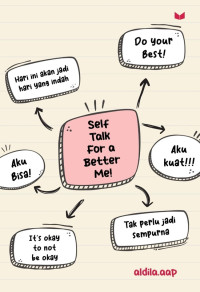 Do your
Best!
Hari ini akan jadi
hari yang indah
Self
Talk
For a
Better
Me!
Aku
Bisa!
Aku
kuat!!!
It's okay
to not
be okay
Tak perlu jadi
sempurna
aldila.aap